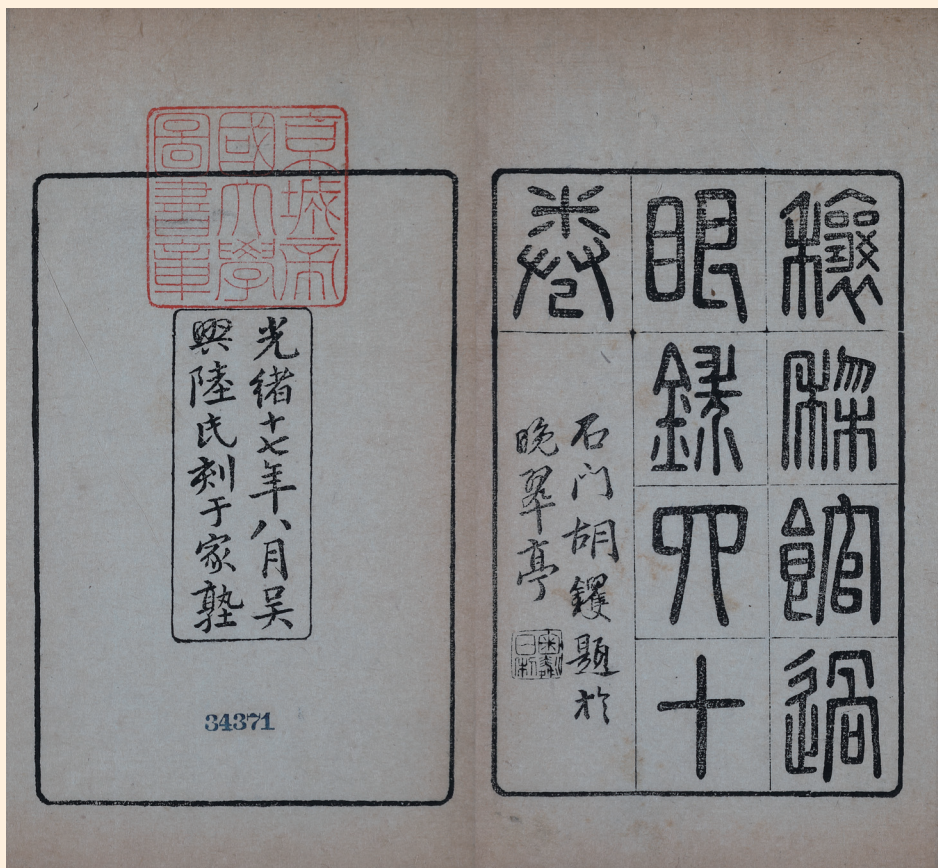 穰梨館過
眼錄四十
卷
石門胡钁題於
晚翠亭
京城帝
國大學
圖書章
光緒十七年八月吳
興陸氏刻于家塾
34371